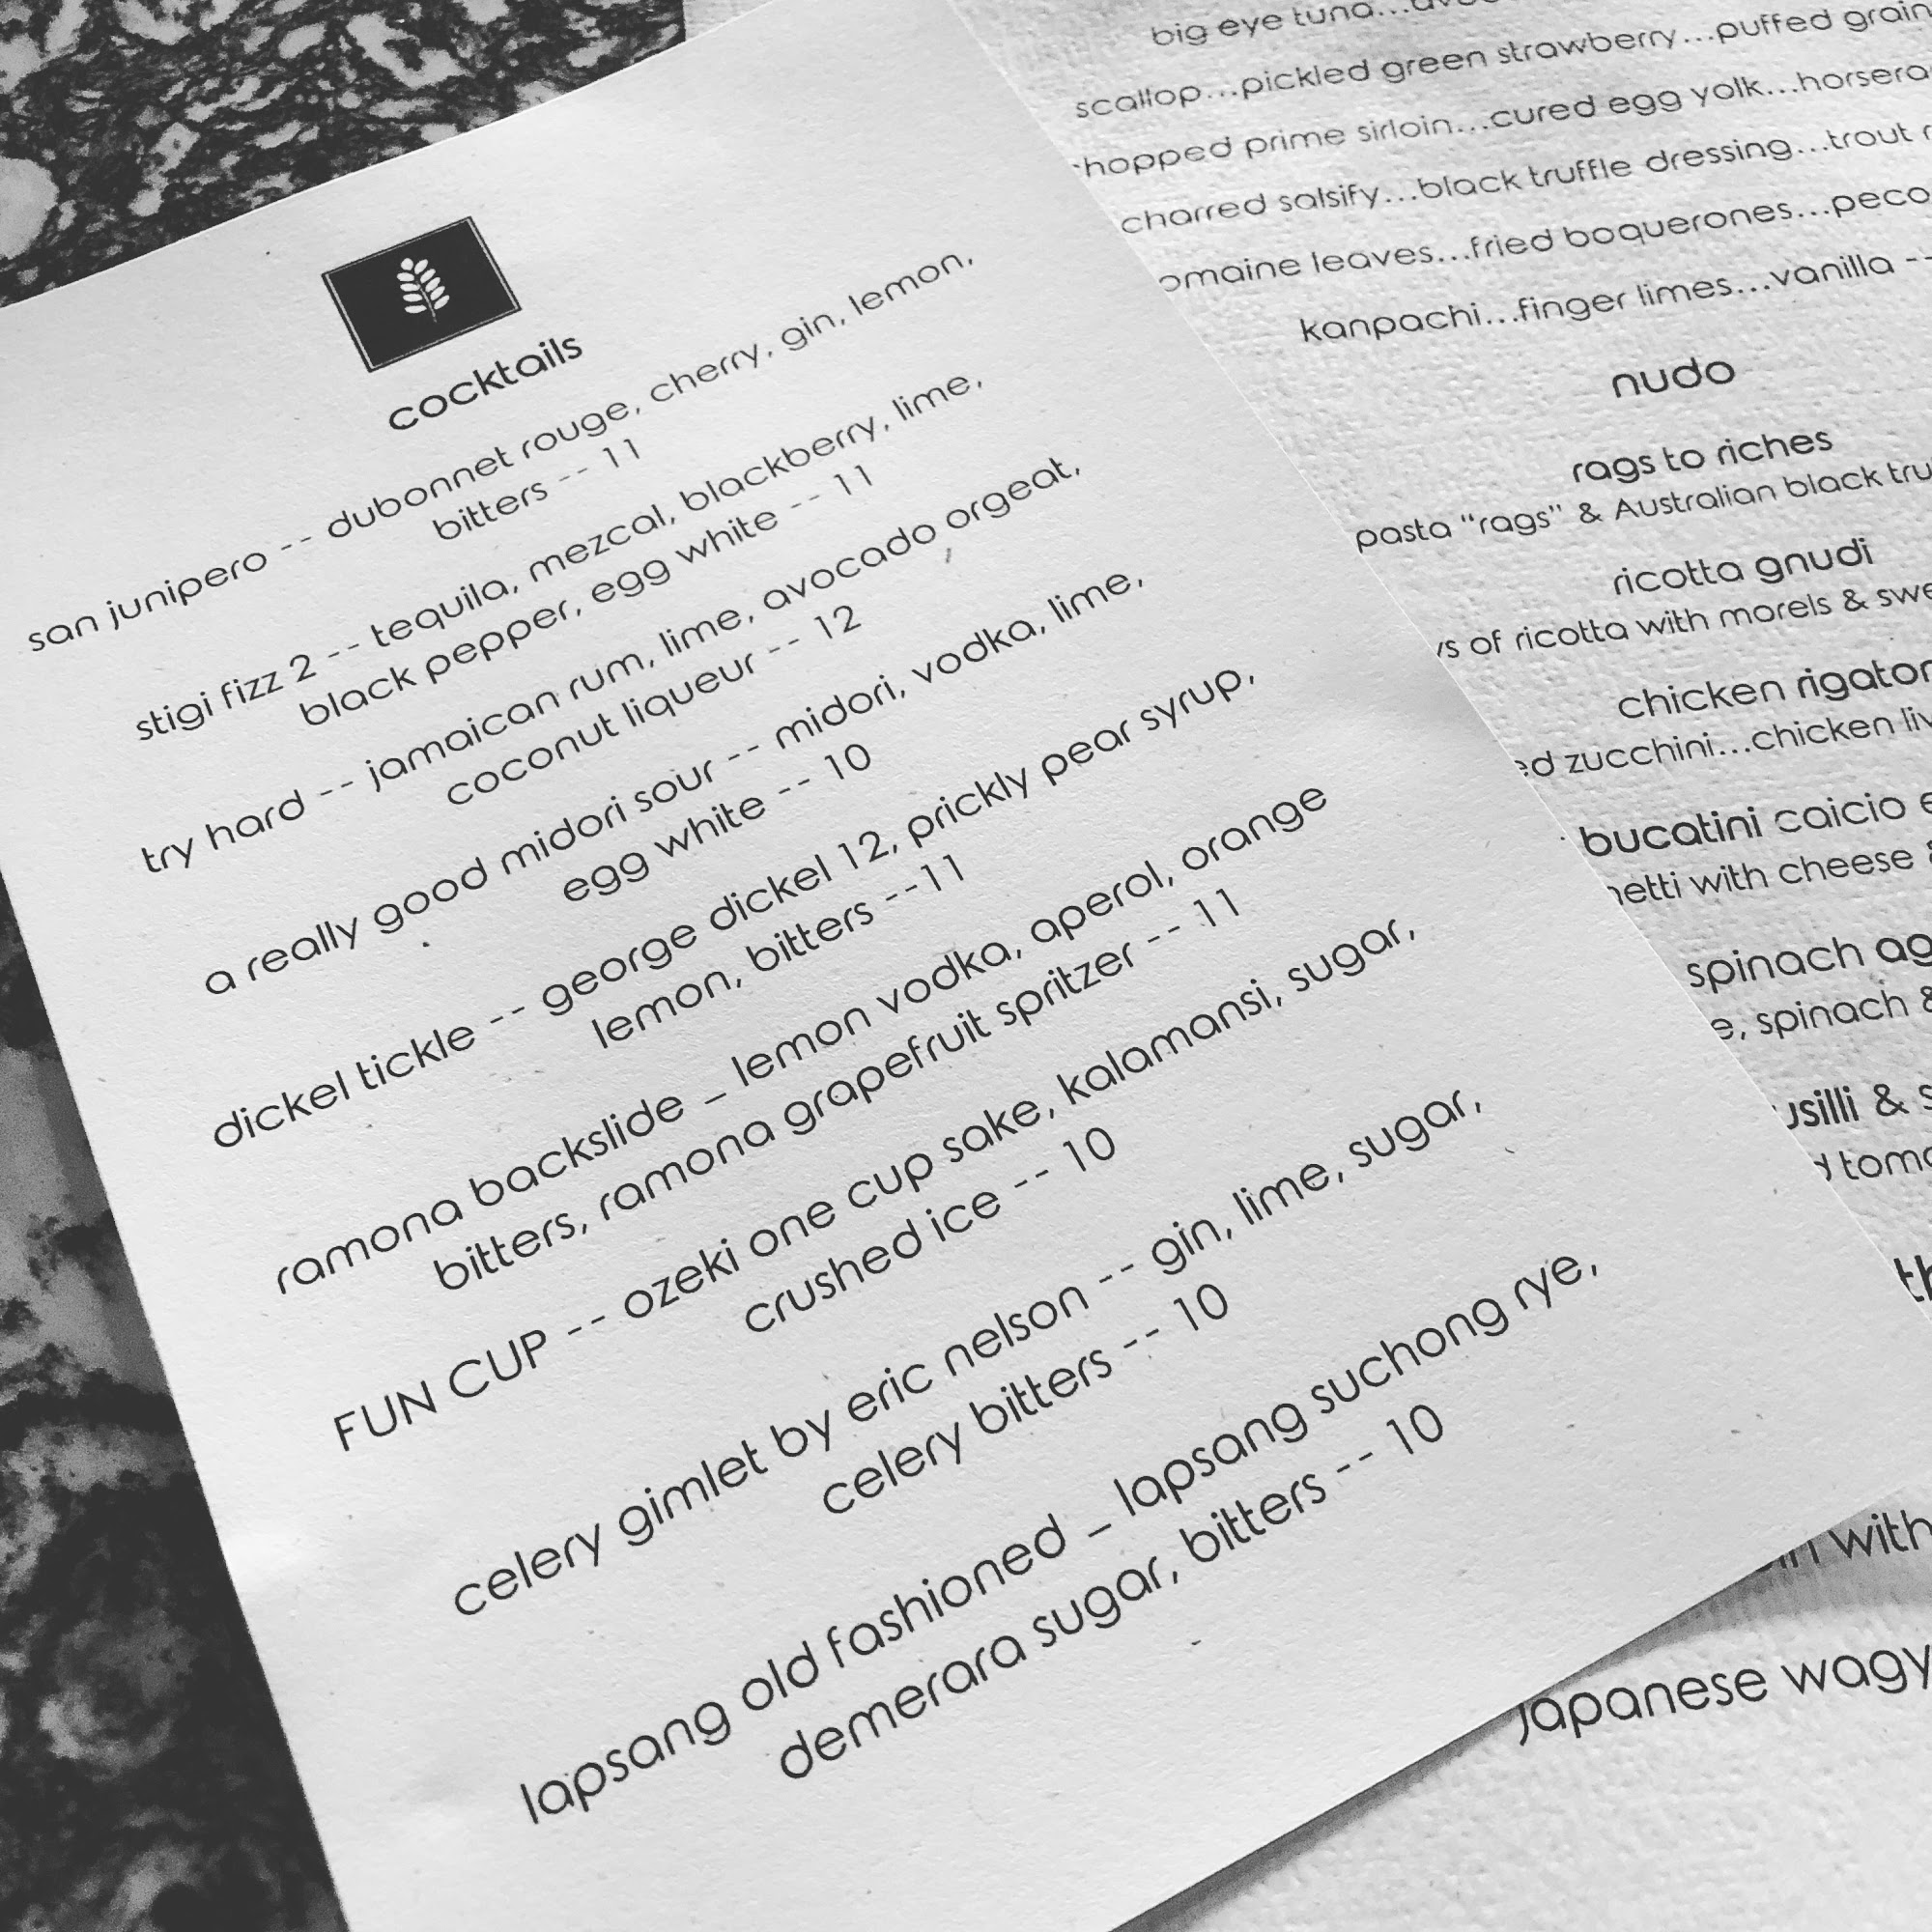 cocktails
san junipero -- dubonnet rouge, cherry, gin, lemon,
bitters -- 11
stigi fizz 2 -- tequila, mezcal, blackberry, lime,
black pepper, egg white -- 11
try hard -- jamaican rum, lime, avocado orgeat,
coconut liqueur -- 12
a really good midori sour -- midori, vodka, lime,
egg white -- 10
dickel tickle -- george dickel 12, prickly pear syrup,
lemon, bitters --11
ramona backslide _ lemon vodka, aperol, orange
bitters, ramona grapefruit spritzer -- 11
FUN CUP -- ozeki one cup sake, kalamansi, sugar,
crushed ice -- 10
celery gimlet by eric nelson -- gin, lime, sugar,
celery bitters -- 10
lapsang old fashioned _ lapsang suchong rye,
demerara sugar, bitters -- 10
big eye tuna...
scallop...pickled green strawberry...puffed grain
hopped prime sirloin...cured egg yolk...horsera
charred salsify...black truffle dressing...trout r
omaine leaves...fried boquerones...peco
kanpachi...finger limes...vanilla --
nudo
rags to riches
pasta "rags" & Australian black tru
ricotta gnudi
s of ricotta with morels & swe
chicken rigaton
ed zucchini...chicken liv
bucatini caicio e
hetti with cheese
spinach ag
e, spinach &
usilli & s
d toma
th
with
japanese wagy